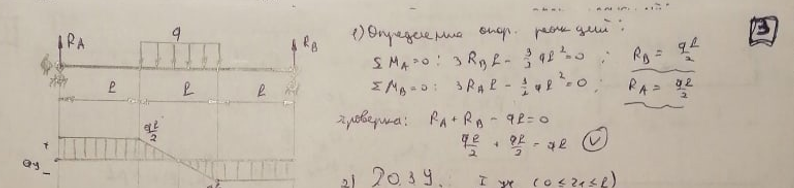 3
1) Определение опор. реакций:
R_A
q
R_B
Σ M_A=0: 3R_B ℓ - 3/2 qℓ²=0; R_B = qℓ/2
Σ M_B=0: 3R_A ℓ - 3/2 qℓ²=0; R_A = qℓ/2
ℓ ℓ ℓ
Проверка: R_A + R_B - qℓ=0
qℓ/2 + qℓ/2 - qℓ V
qℓ/2
+
Qy -
2) I уч (0≤z₁≤ℓ)